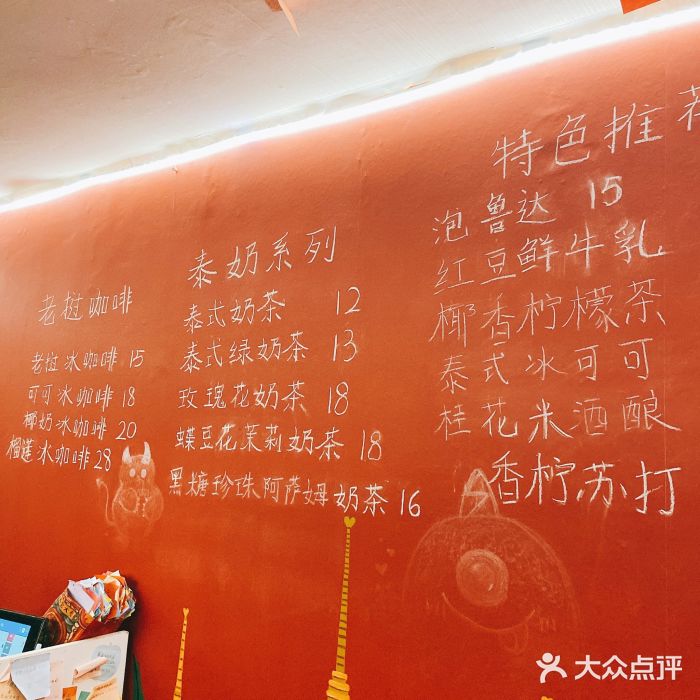 老挝咖啡
老挝冰咖啡 15
可可冰咖啡 18
椰奶冰咖啡 20
榴莲冰咖啡 28
泰奶系列
泰式奶茶 12
泰式绿奶茶 13
玫瑰花奶茶 18
蝶豆花茉莉奶茶 18
黑糖珍珠阿萨姆奶茶 16
特色推荐
泡鲁达 15
红豆鲜牛乳
椰香柠檬茶
泰式冰可可
桂花米酒酿
香柠苏打
大众点评